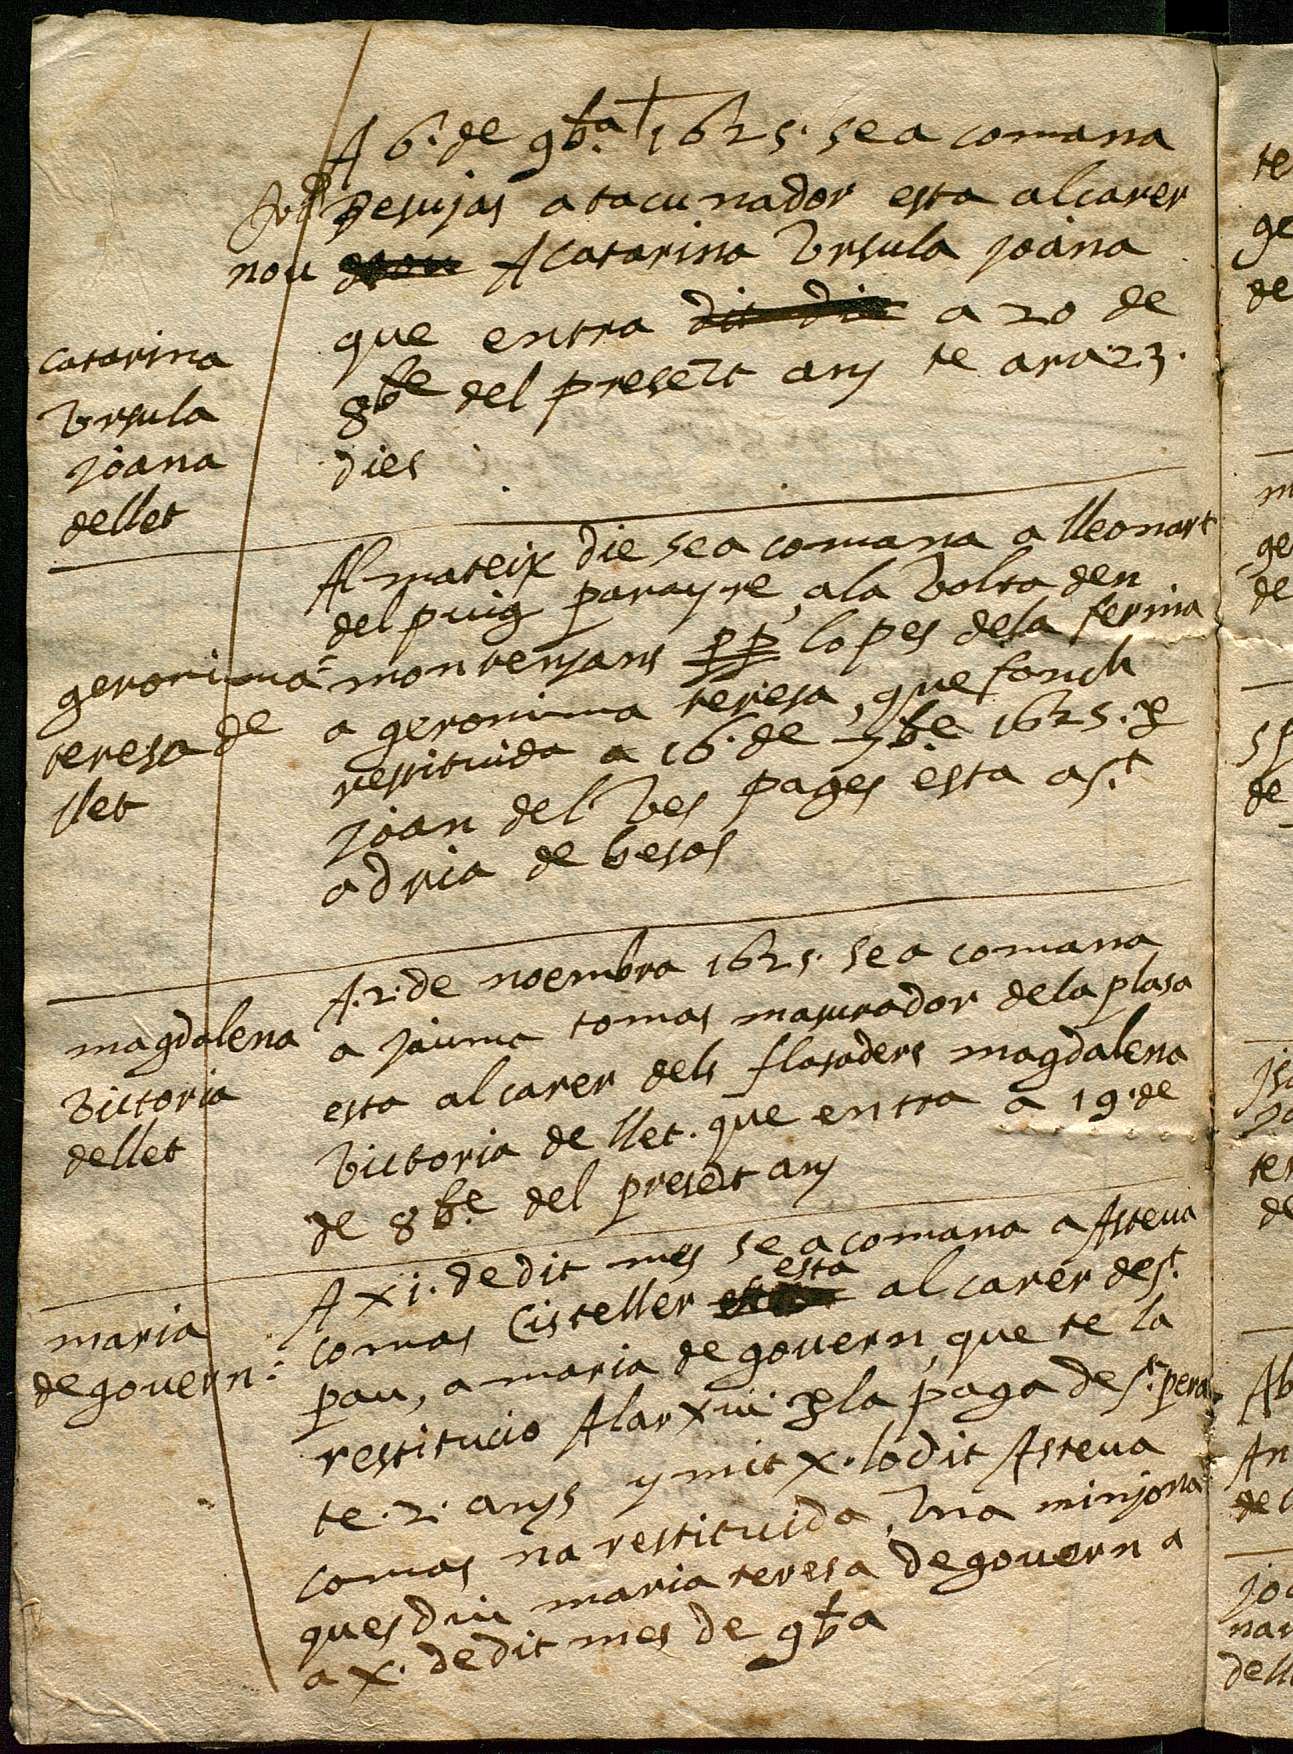 A 6. de 9bra 1625. se a comana
pesujas a tacunador esta al carer
nou A Catarina Vrsula joana
que entra dit dit a 20 de
8be del present any te ara 23.
dies
catarina
Vrsula
joana
de llet
Al mateix die se a comana a lleonart
del puig parayre, ala Volta den
montensans pp lopes dela ferina
a geronima teresa, que fonch
restituida a 16. de 7be 1625. p
joan del Ves pages esta a St.
adria de besos
geronima
teresa de
llet
A. 2. de noembra 1625. se a comana
a jauma tomas masurador dela plasa
esta al carer dels flasaders magdalena
Victoria de llet. que entra a 19. de
de 8be. del present any
magdalena
Victoria
de llet
A xi. de dit mes se a comana a Asteva
comas Cisteller esta al carer de St.
pau, a maria de govern, que te la
restitucio A lar xiii p la paga de St. pera
te. 2. anys y mit x. lo dit Asteva
comas na restituida, Vna minyona
ques diu maria teresa de govern a
a x. de dit mes de 9bra
maria
de govern: